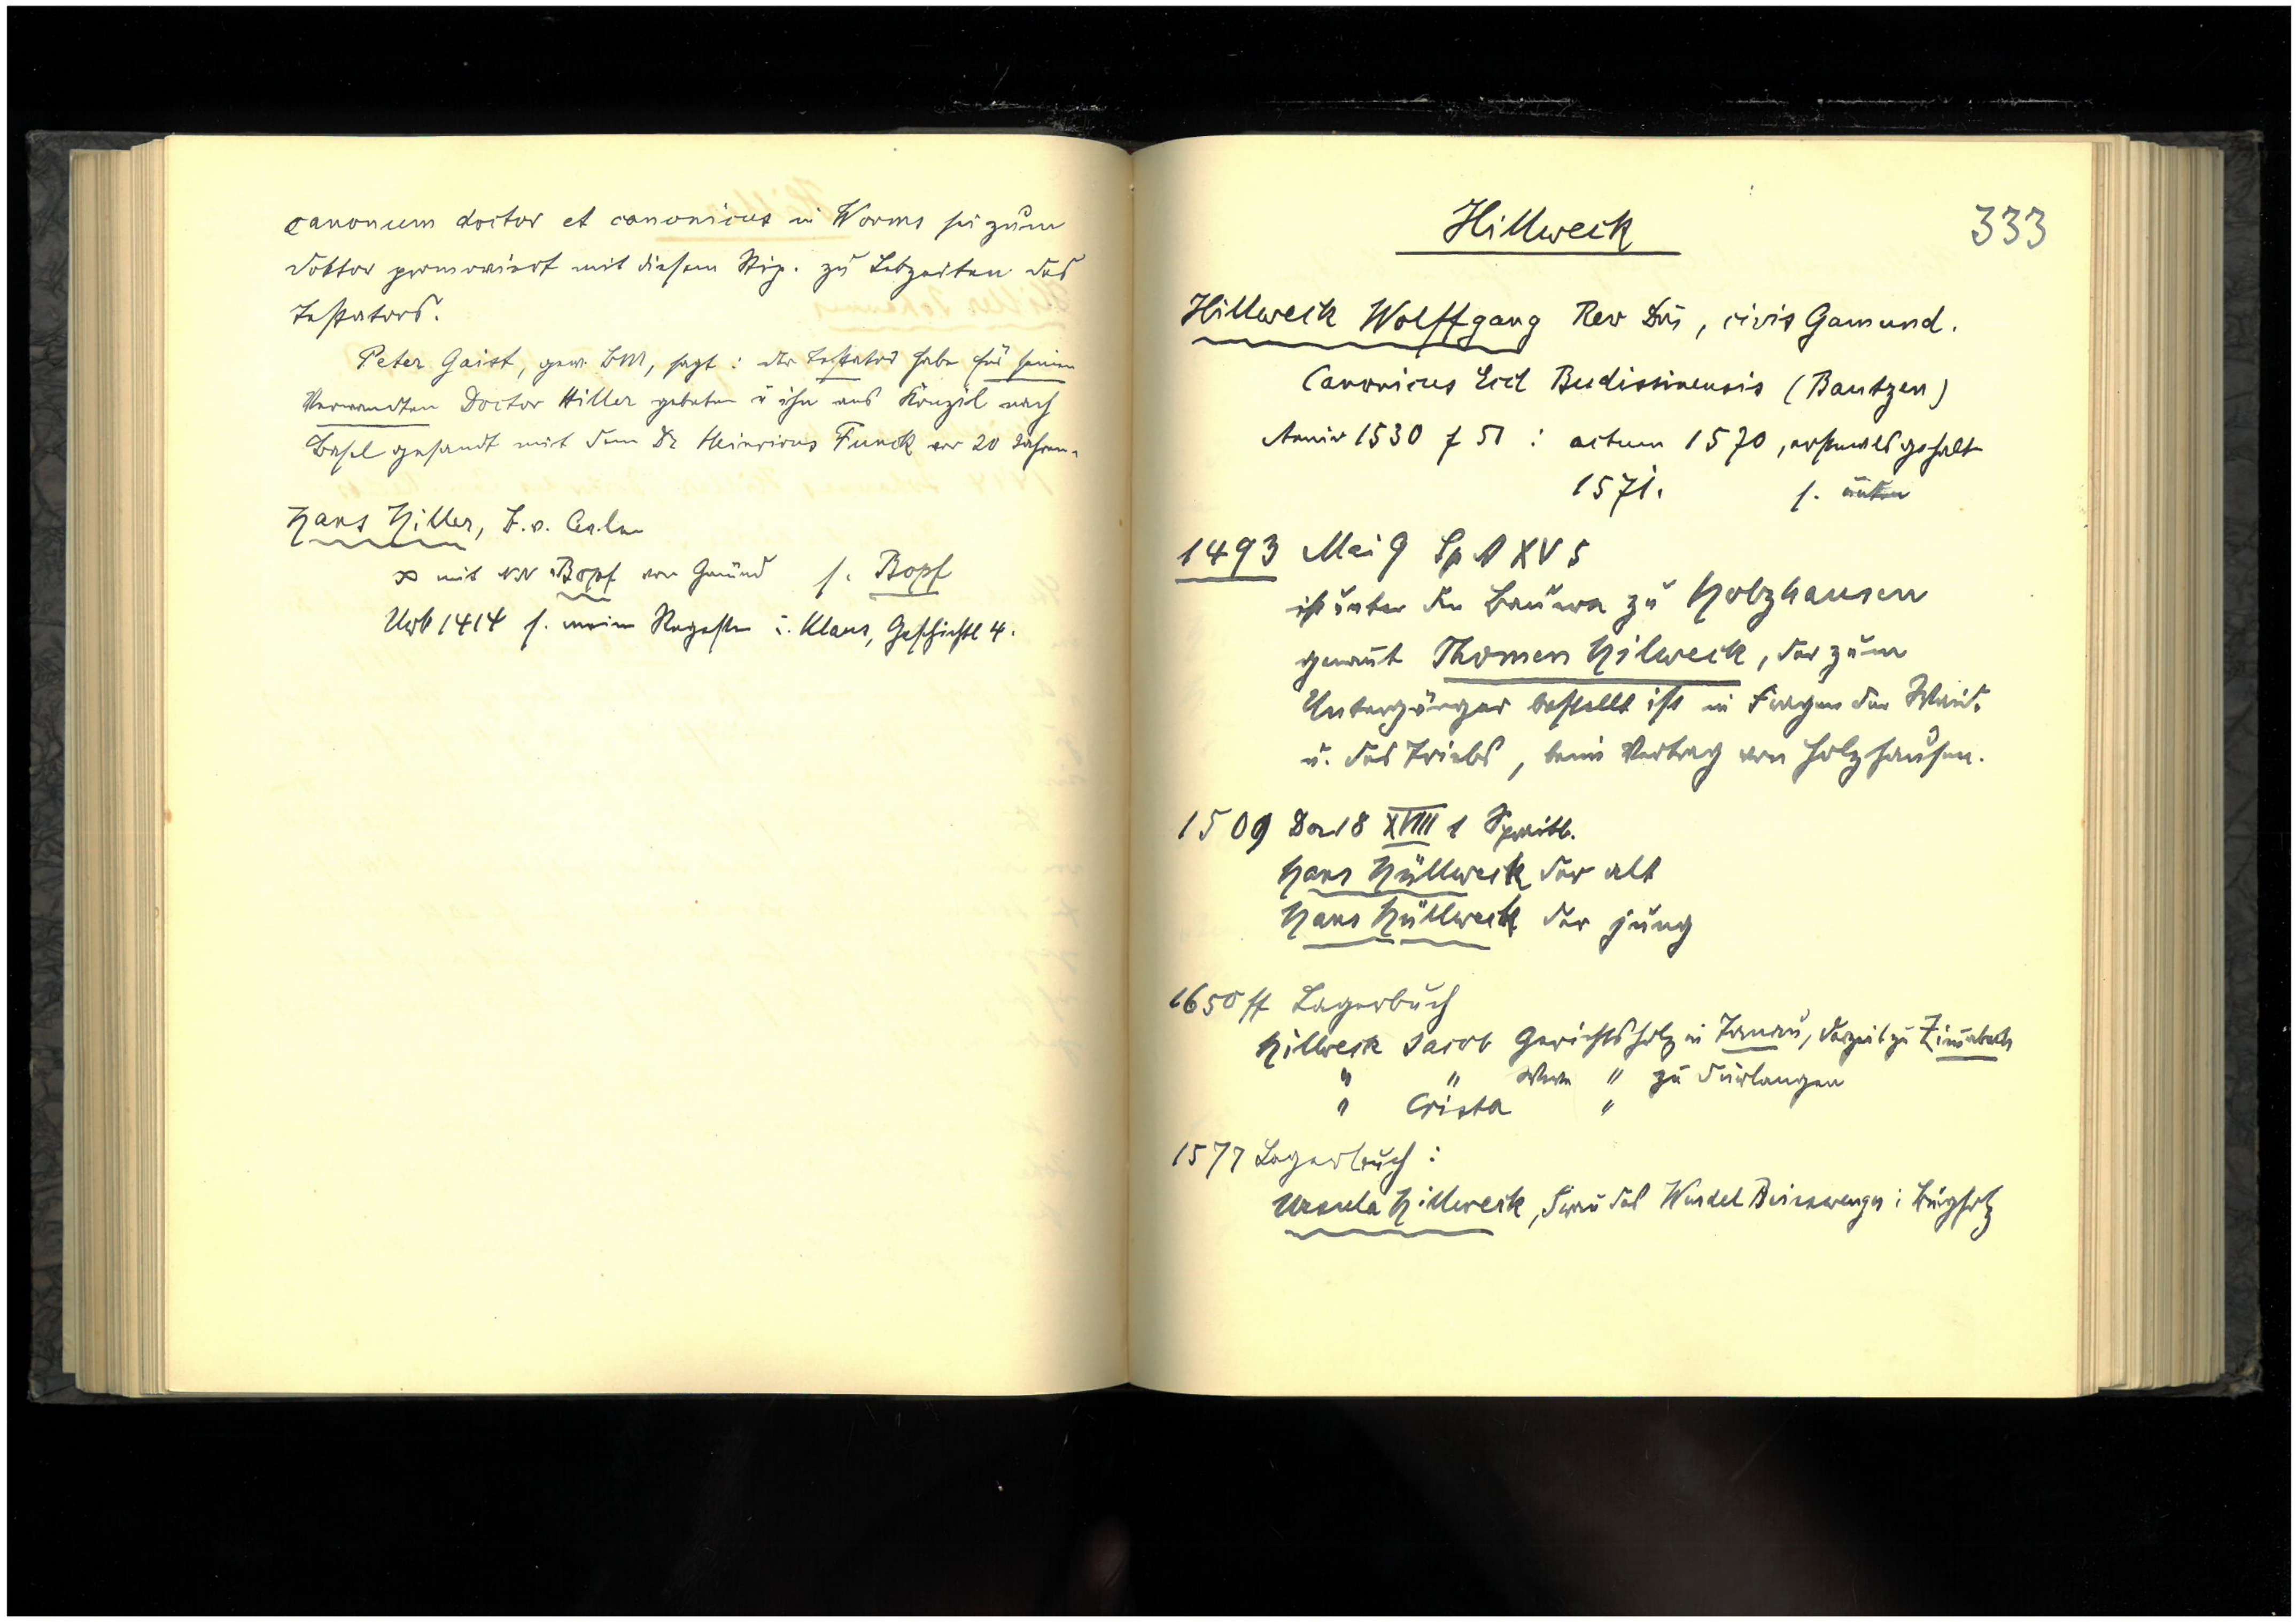 canonum doctor et canonicus in Worms sei zum
Doktor promoviert mit diesem Stip. zu Lebzeiten des
Testators.
Peter Gaist, gew. BM, sagt: der Testator habe für seinen
Verwandten Doctor Hiller gebeten u ihn aus Konzil nach
Basel gesandt mit dem Dr Heinricus Funck vor 20 Jahren.
Hans Hiller, B. v. Aalen
∞ mit NN Bopf von Gmünd s. Bopf
Urk 1414 s. meine Regesten u. Klaus, Geschichtl 4.
333
Hillweck
Hillweck Wolffgang Rev Dns, civis Gamund.
Canonicus Eccl Budissinensis (Bautzen)
Anniv 1530 f 51: actum 1570, erstmals gehalt
1571. s. unten
1493 Mai 9 Sp A XV 5
ist unter den Bauern zu Holzhausen
genannt Thomen Hilweck, der zum
Untergänger bestellt ist in Fragen der Waid.
u. des Triebs, beim Vertrag von Holzhausen.
1509 Dez 18 XVIII 1 Spitalb.
Hans Hüllweck der alt
Hans Hüllweck der jung
1650 ff Lagerbuch
Hillweck Jacob Gerichtsholz in Tanau, derzeit zu Zimmerbach
" " " zu Durlangen
" Crista "
1577 Lagerbuch:
Ursula Hillweck, Frau des Wendel Beisswenger i Burgholz